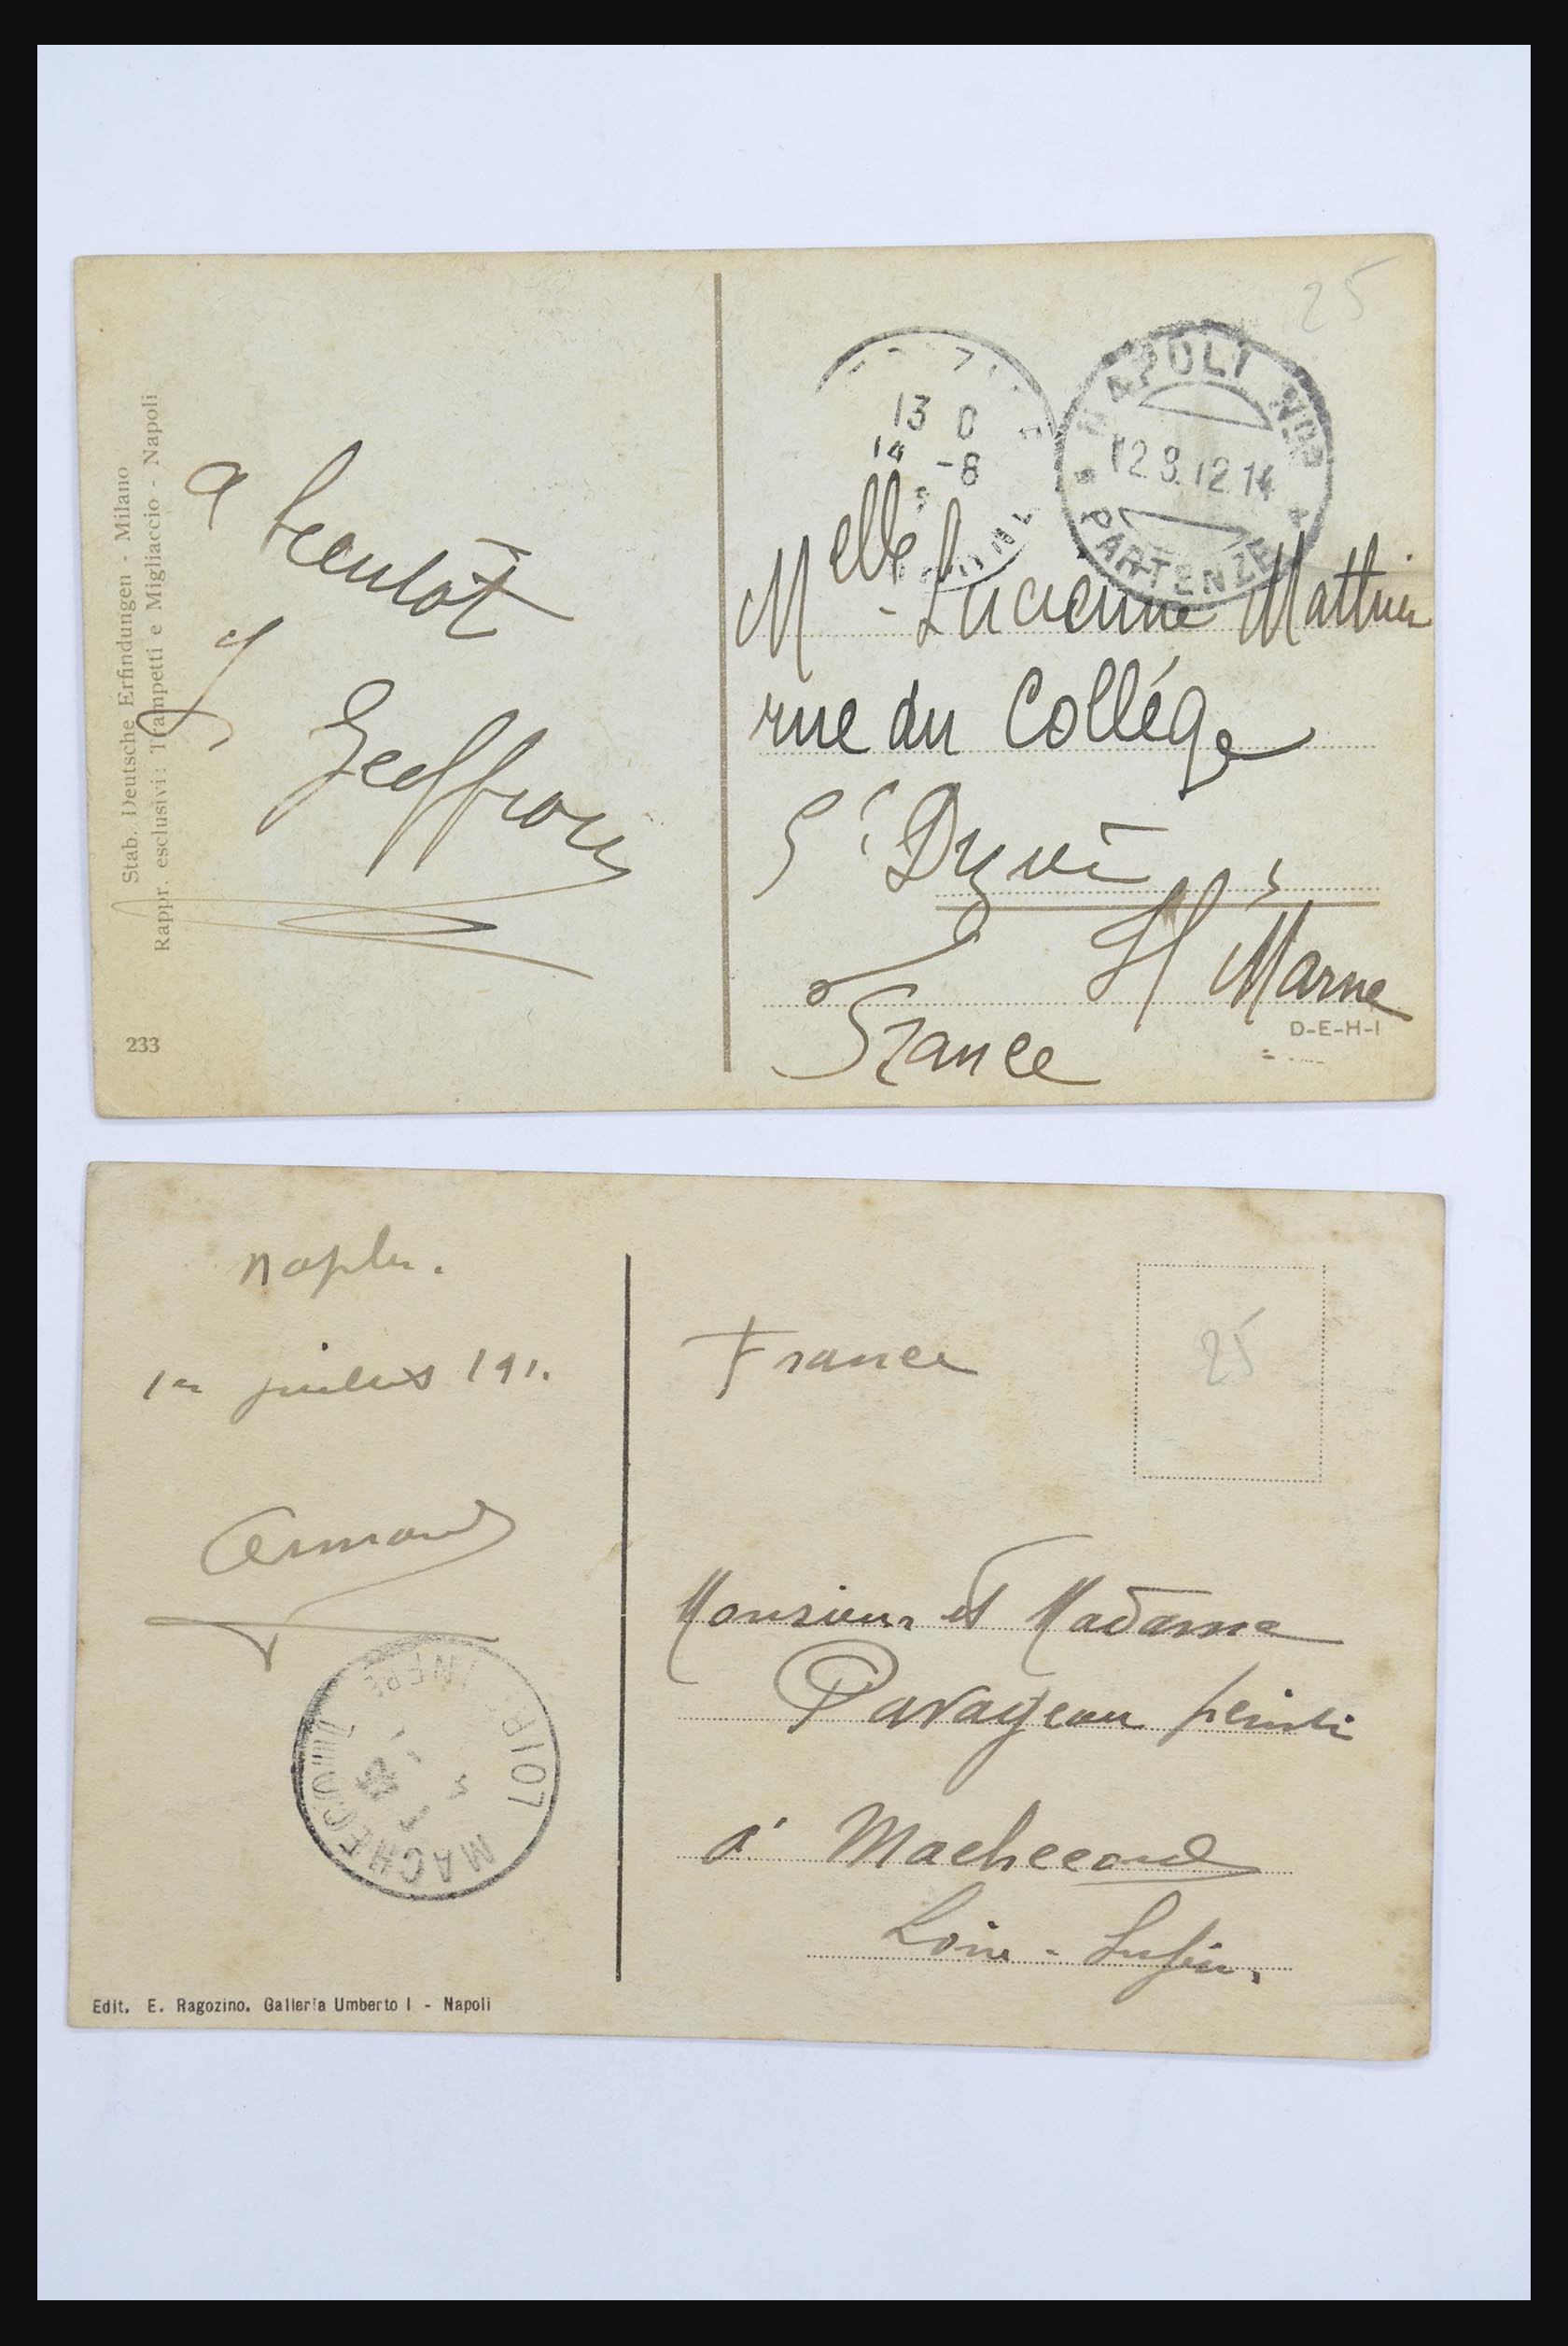 25
NAPOLI
12 8.12.14
PARTENZE
13 0
14 -8
a bientôt
J Geoffroy
Melle Lucienne Mathieu
rue du Collége
St Dizier
Hte Marne
France
Stab. Deutsche Erfindungen - Milano
Rappr. esclusivi: Trampetti e Migliaccio - Napoli
233
D-E-H-I
Naples.
1er juillet 191.
Armand
MACHECOUL
LOIRE INFRE
Edit. E. Ragozino. Galleria Umberto I - Napoli
France
25
Monsieur et Madame
Pavageau
à Machecoul
Loire-Infér.